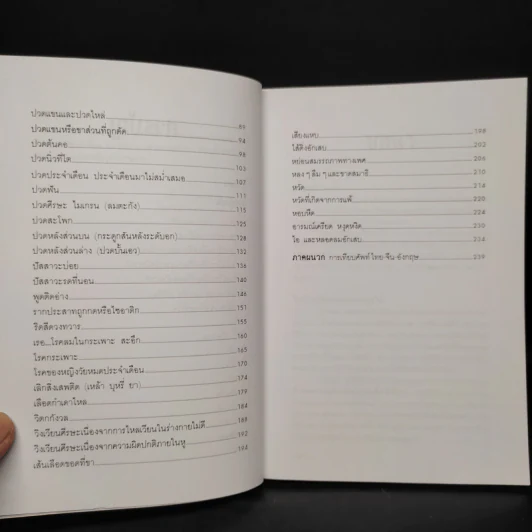 ปวดแขนและปวดไหล่ 89
ปวดแขนหรือขาส่วนที่ถูกตัด 94
ปวดต้นคอ 98
ปวดนิ้วที่ใด 103
ปวดประจำเดือน ประจำเดือนมาไม่สม่ำเสมอ 107
ปวดฟัน 111
ปวดศีรษะ ไมเกรน (ลมตะกัง) 115
ปวดสะโพก 125
ปวดหลังส่วนบน (กระดูกสันหลังระดับอก) 128
ปวดหลังส่วนล่าง (ปวดบั้นเอว) 132
ปัสสาวะบ่อย 136
ปัสสาวะรดที่นอน 140
พูดติดอ่าง 146
รากประสาทถูกกดหรือไซอาติก 151
ริดสีดวงทวาร 155
เรอ...โรคลมในกระเพาะ สะอึก 160
โรคกระเพาะ 165
โรคของหญิงวัยหมดประจำเดือน 170
เลิกสิ่งเสพติด (เหล้า บุหรี่ ยา) 174
เลือดกำเดาไหล 179
วิตกกังวล 184
วิงเวียนศีรษะเนื่องจากการไหลเวียนในร่างกายไม่ดี 189
วิงเวียนศีรษะเนื่องจากความผิดปกติภายในหู 192
เส้นเลือดขอดที่ขา 194
เสียงแหบ 198
ไส้ติ่งอักเสบ 203
หย่อนสมรรถภาพทางเพศ 206
หลง ๆ ลืม ๆ และขาดสมาธิ 210
หวัด 214
หวัดที่เกิดจากการแพ้ 220
หอบหืด 224
อารมณ์เครียด หงุดหงิด 230
ไอ และหลอดลมอักเสบ 234
ภาคผนวก การเทียบศัพท์ ไทย-จีน-อังกฤษ 239